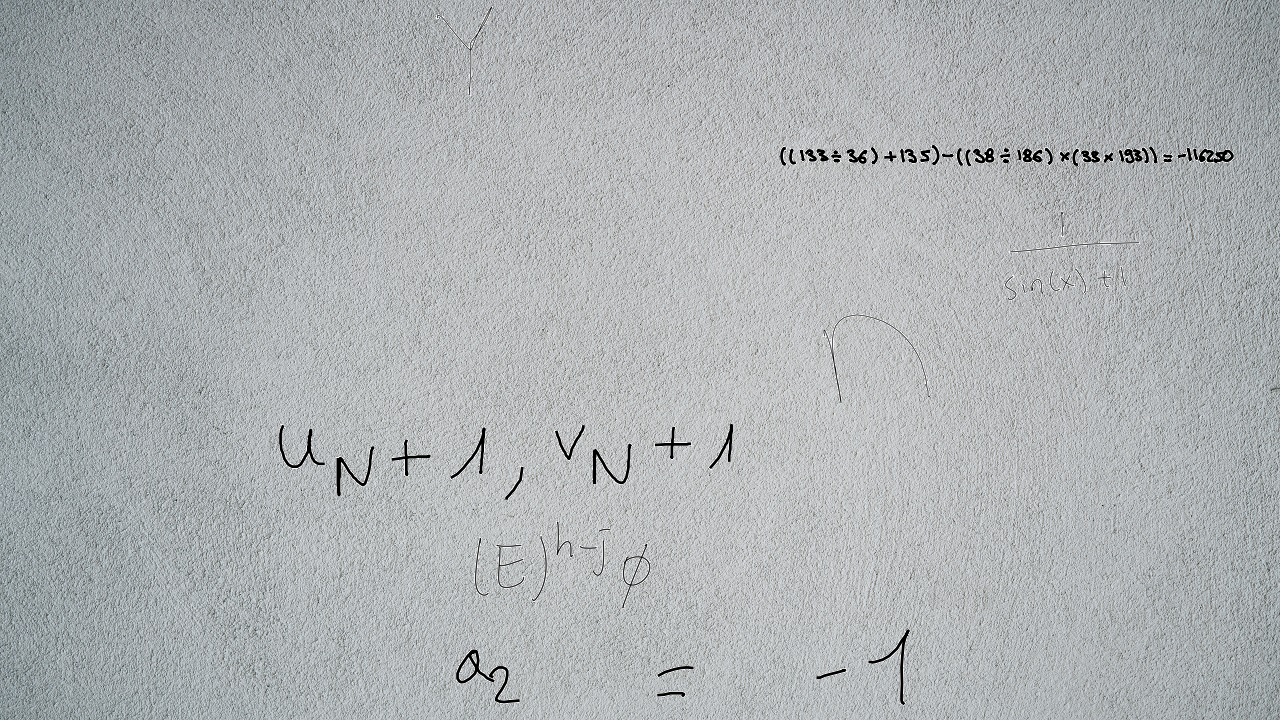 Y
((133÷36)+135)-((38÷186)×(33×193))=-116250
\frac{1}{sin(x)+1}
∩
u_N+1, v_N+1
(E)^{h-j}ϕ
a_2 = -1